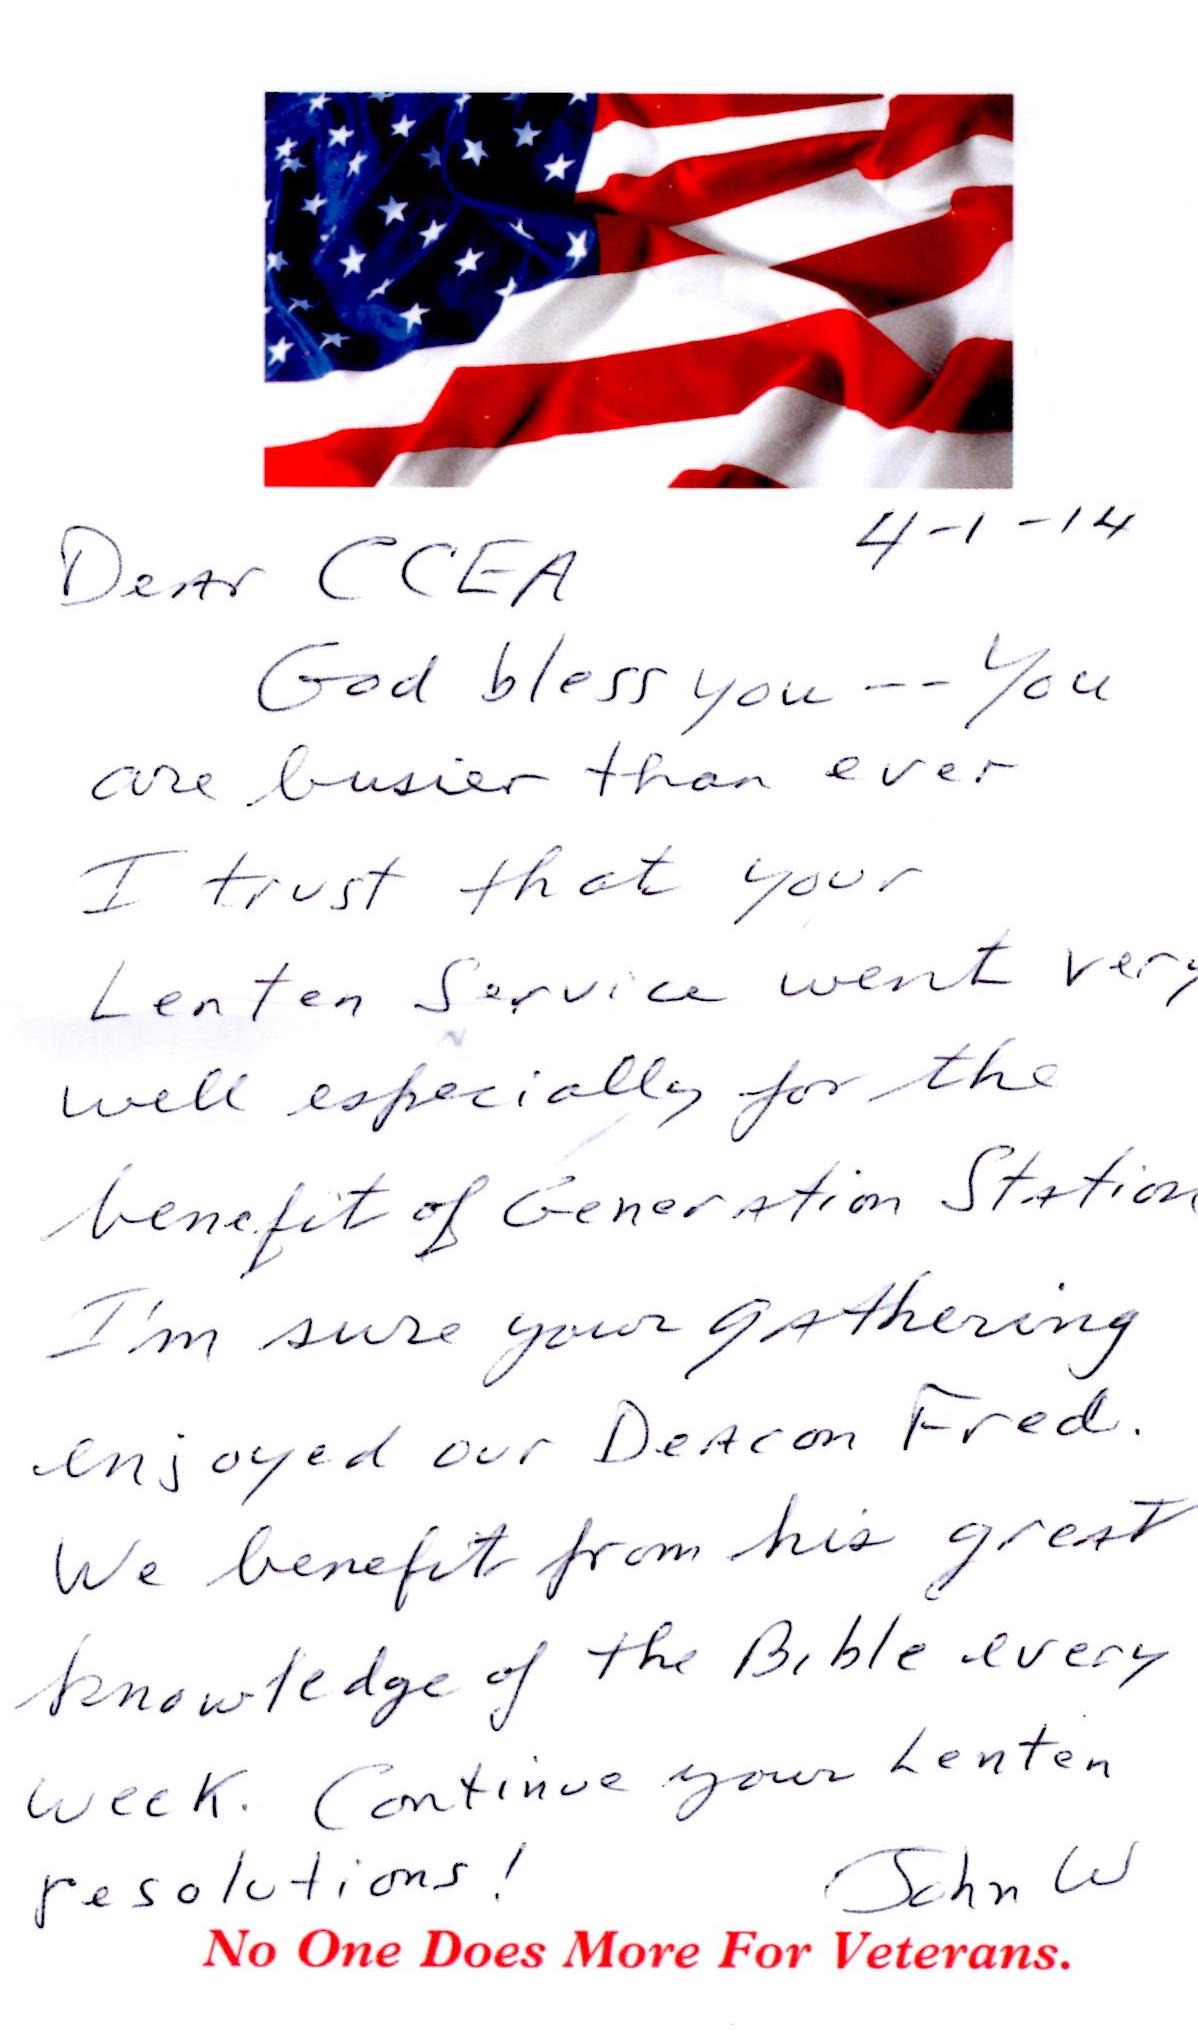 4-1-14
Dear CCEA
God bless you -- You
are busier than ever
I trust that your
Lenten Service went very
well especially for the
benefit of Generation Station
I'm sure your gathering
enjoyed our Deacon Fred.
We benefit from his great
knowledge of the Bible every
week. Continue your Lenten
resolutions!
John W
No One Does More For Veterans.